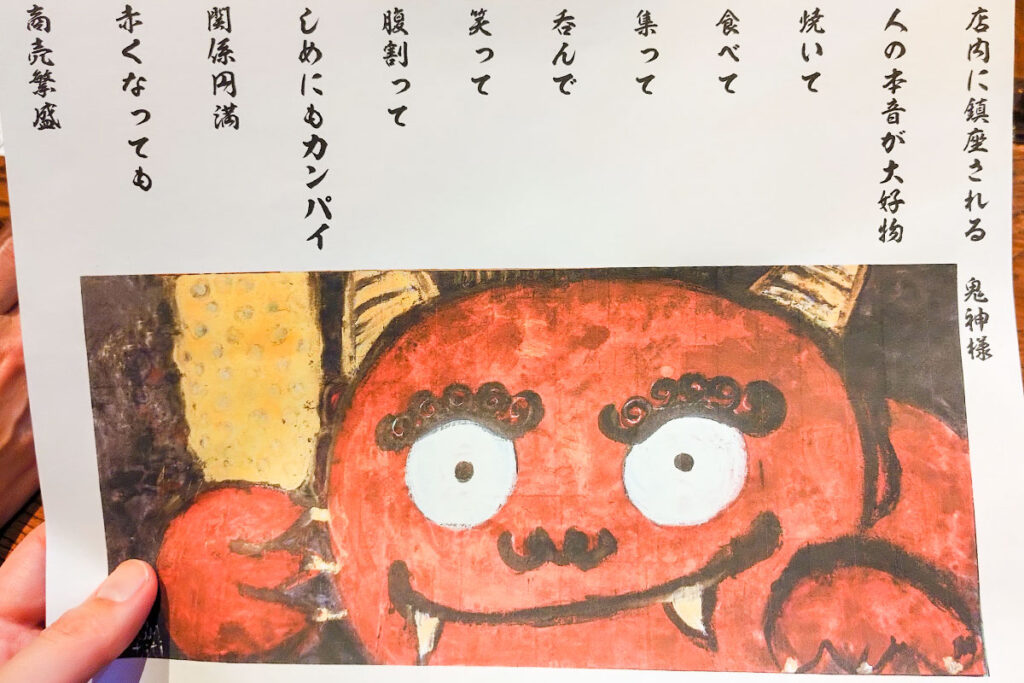 店内に鎮座される　鬼神様
人の本音が大好物
焼いて
食べて
集って
呑んで
笑って
腹割って
しめにもカンパイ
関係円満
赤くなっても
商売繁盛